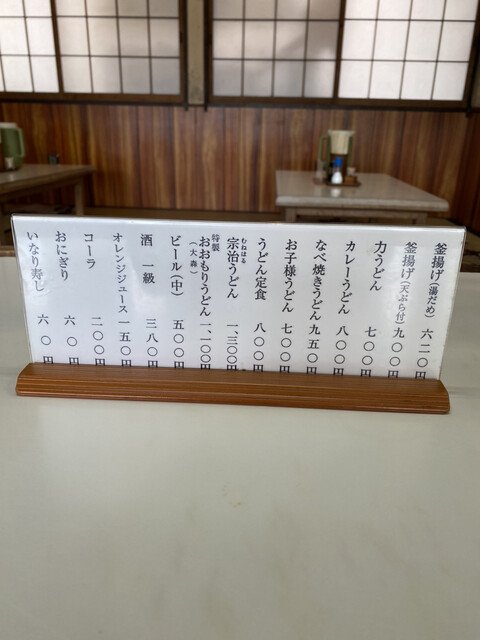 釜揚げ(湯だめ) 六二〇円
釜揚げ(天ぷら付)九〇〇円
力うどん 七〇〇円
カレーうどん 八〇〇円
なべ焼きうどん 九五〇円
お子様うどん 七〇〇円
うどん定食 八〇〇円
むねはる
宗治うどん 一、三〇〇円
特製
おおもりうどん 一、一〇〇円
(大森)
ビール(中) 五〇〇円
酒 一級 三八〇円
オレンジジュース 一五〇円
コーラ 二〇〇円
おにぎり 六〇円
いなり寿し 六〇円